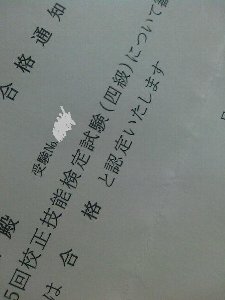 合格通知
受験No.
殿
5回校正技能検定試験(四級)について
は 合 格 と認定いたします